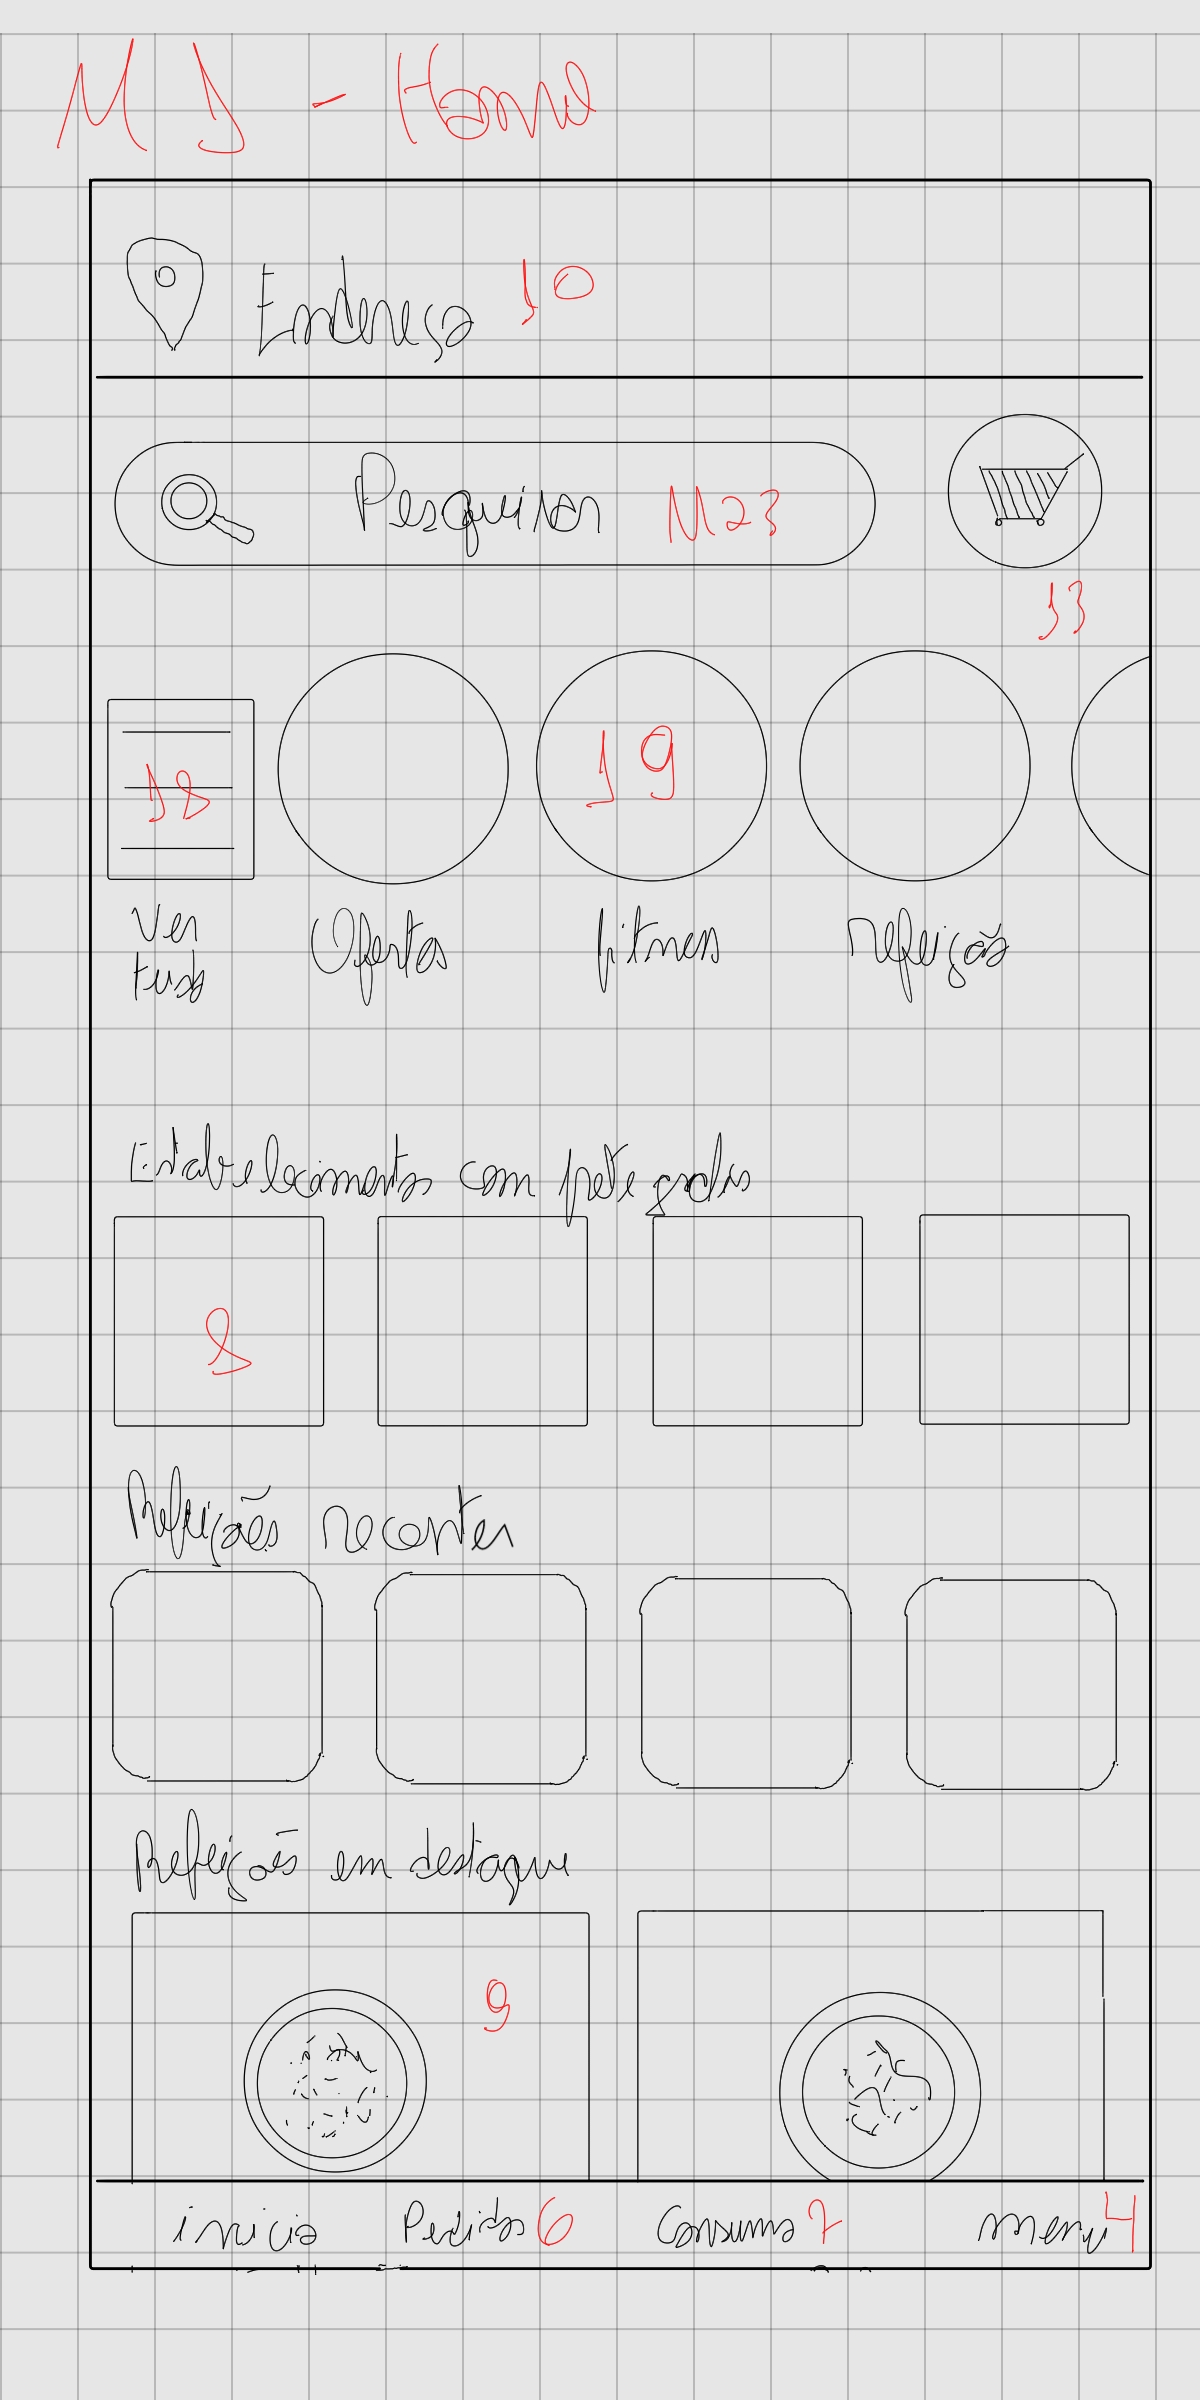 M1 - Home
Endereço 10
Pesquisar M23
13
18
19
Ver
tudo
Ofertas
fitness
refeição
Estabelecimentos com frete gratis
8
Refeições recentes
Refeições em destaque
9
inicio Pedidos 6 Consumo 7 menu 4